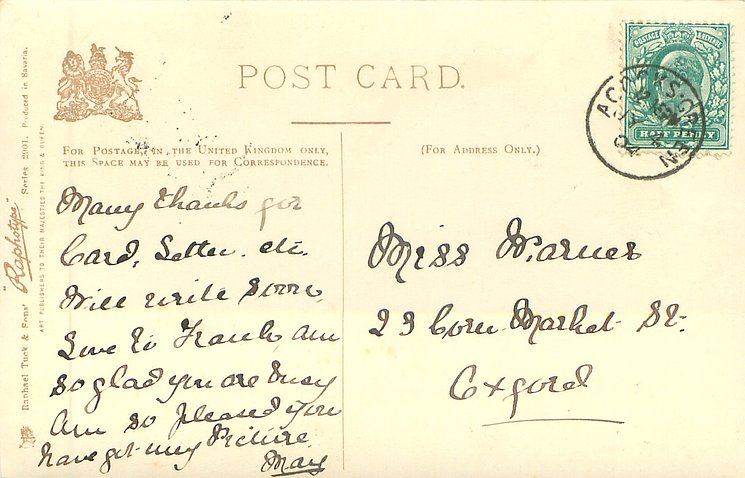 POST CARD.
FOR POSTAGE, IN THE UNITED KINGDOM ONLY,
THIS SPACE MAY BE USED FOR CORRESPONDENCE.
(FOR ADDRESS ONLY.)
POSTAGE & REVENUE
HALF PENNY
ACOCKS GREEN
04
Many thanks for
Card, Letter. etc.
Will write soon,
Love to Frank, am
so glad you are busy
Am so pleased you
have got my Picture
May
Miss Warner
23 Corn Market St.
Oxford
Raphael Tuck & Sons' "Raphotype" Series 2001. Produced in Bavaria.
ART PUBLISHERS TO THEIR MAJESTIES THE KING & QUEEN.